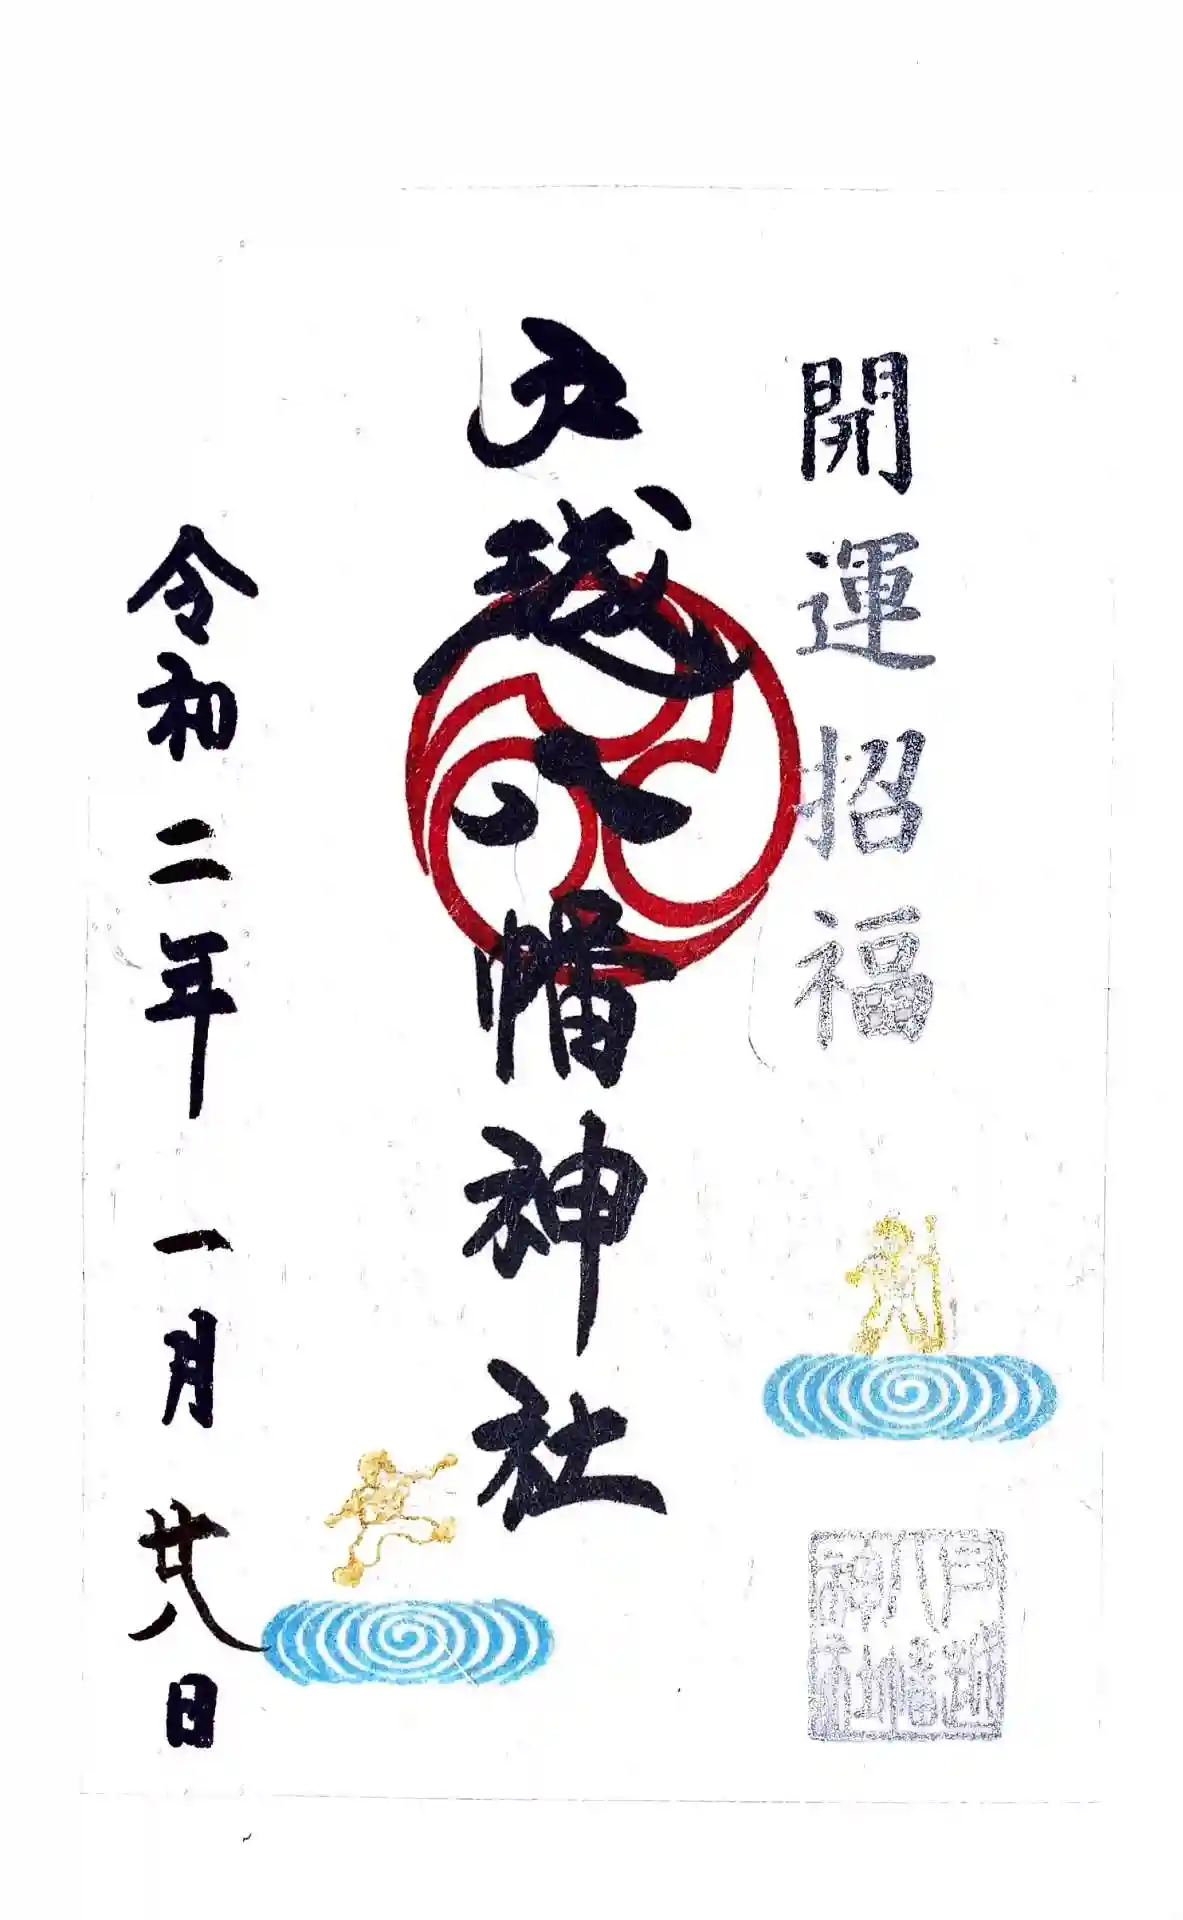 開運招福
戸越八幡神社
令和二年一月廿八日
戸越
八幡
神社